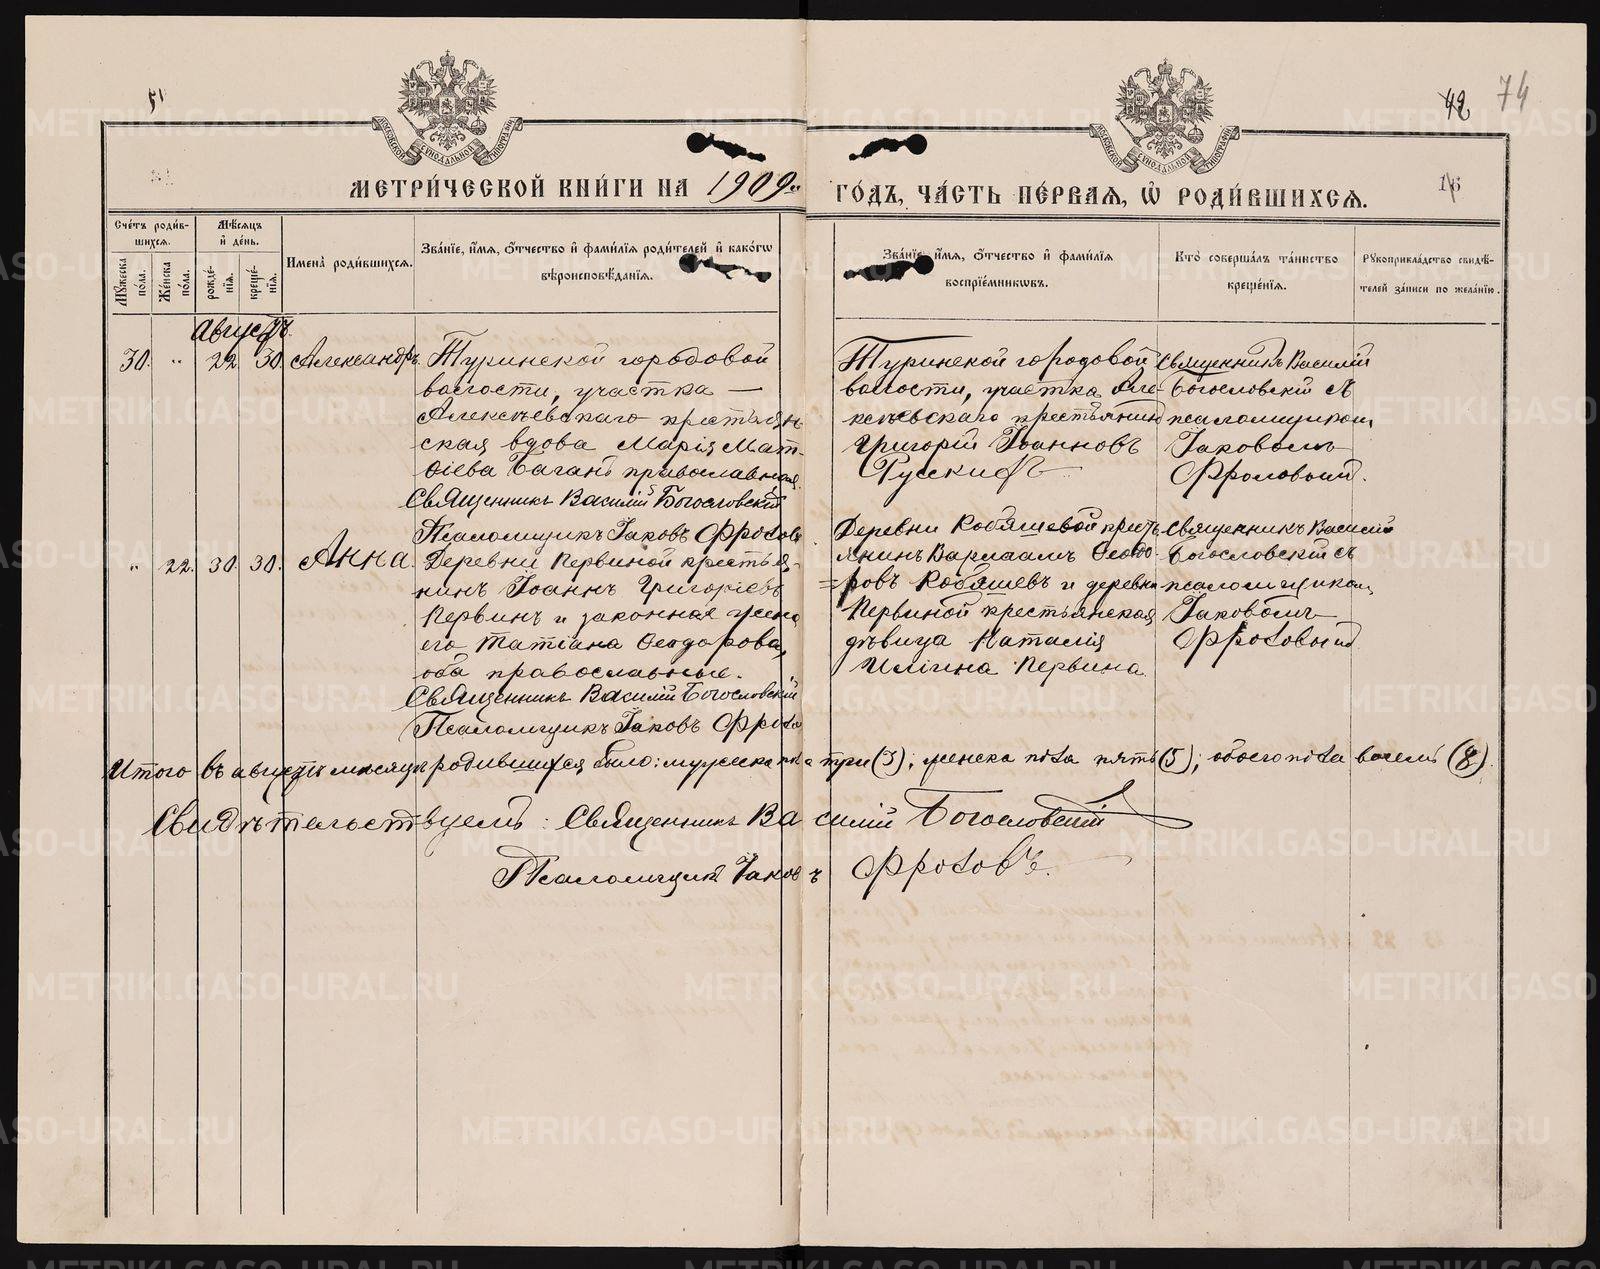 51
42 74
МОСКОВСКОЙ СѴНОДАЛЬНОЙ ТИПОГРАФІИ
МОСКОВСКОЙ СѴНОДАЛЬНОЙ ТИПОГРАФІИ
МЕТРИ́ЧЕСКОЙ КНИ́ГИ НА 1909й ГО́ДЪ, ЧА́СТЬ ПЕ́РВАЯ, Ѡ҆ РОДИ́ВШИХСЯ.
16
Сче́тъ роди́в-
шихся.
Мѣ́сяцъ
и҆ де́нь.
Мꙋ́жеска
по́ла.
Же́нска
по́ла.
рожде́-
нїя.
креще́-
нїя.
Имена̀ роди́вшихся.
Зва́нїе, и҆́мя, ѻ҆́тчество и҆ фами́лїя роди́телей и҆ како́гѡ
вѣроисповѣ́данїя.
Зва́нїе, и҆́мя, ѻ҆́тчество и҆ фами́лїя
воспрїе́мникѡвъ.
Кто̀ соверша́лъ та́инство
креще́нїя.
Рꙋкоприкла́дство свидѣ́-
телей за́писи по жела́нїю.
Августъ.
30. " 22. 30. Александръ.
Туринской городовой
волости, участка —
Алексѣевскаго крестьян-
ская вдова Марія Мат-
ѳіева Баганъ православная.
Священникъ Василій Богословскій
Псаломщикъ Іаковъ Фроловъ
Туринской городовой
волости, участка Але-
ксѣевскаго крестьянинъ
Григорій Іоанновъ
Русскихъ
Священникъ Василій
Богословскій съ
псаломщикомъ
Іаковомъ
Фроловымъ.
" 22. 30. 30. Анна.
Деревни Первиной крестья-
нинъ Іоаннъ Григоріевъ
Первинъ и законная жена
его Татіана Ѳеодорова,
оба православные.
Священникъ Василій Богословскій
Псаломщикъ Іаковъ Фроло
Деревни Кобяшевой кресть-
янинъ Варлаамъ Ѳеодо-
=ровъ Кобяшевъ и деревни
Первиной крестьянская
дѣвица Наталія
Иліина Первина.
Священникъ Василій
Богословскій съ
псаломщикомъ
Іаковомъ
Фроловымъ
Итого въ августѣ мѣсяцѣ родившихся было: мужеска пола три (3); женска пола пять (5); обоего пола восемь (8).
Свидѣтельствуемъ: Священникъ Василій Богословскій
Псаломщикъ Іаковъ Фроловъ.
METRIKI.GASO-URAL.RU